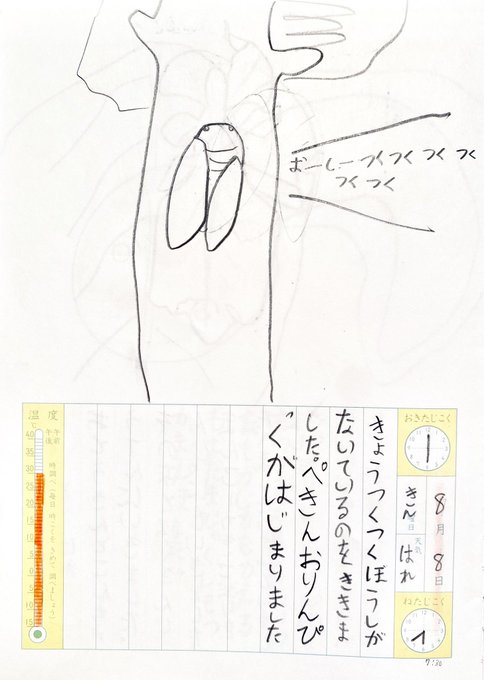 おーしーつくつくつくつく
つくつく
おきたじこく
8月8日
きん曜日
天気
はれ
ねたじこく
7:30
きょうつくつくぼうしが
ないているのをききま
した。ぺきんおりんぴ
っくがはじまりました
温度
℃
午前
午後
40
35
30
25
20
15
10
5
0
5
10
15